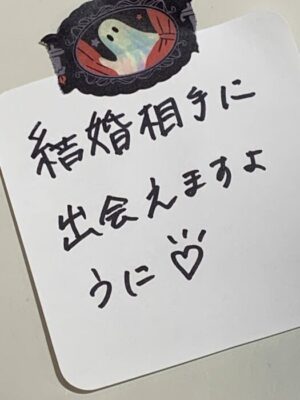 結婚相手に
出会えますよ
うに♡